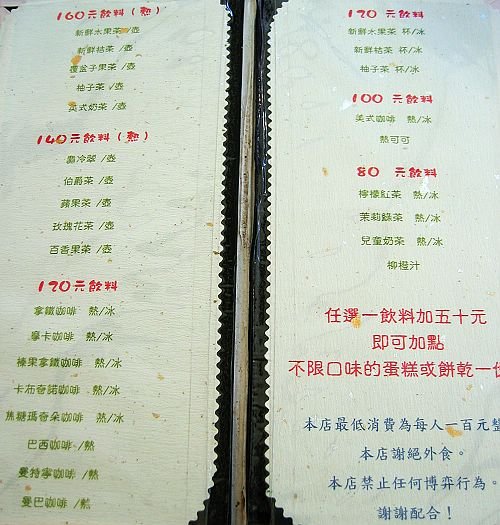 160元飲料(熱)
新鮮水果茶 /壺
新鮮桔茶 /壺
覆盆子果茶 /壺
柚子茶 /壺
英式奶茶 /壺
140元飲料(熱)
翡冷翠 /壺
伯爵茶 /壺
蘋果茶 /壺
玫瑰花茶 /壺
百香果茶 /壺
120元飲料
拿鐵咖啡 熱/冰
摩卡咖啡 熱/冰
榛果拿鐵咖啡 熱/冰
卡布奇諾咖啡 熱/冰
焦糖瑪奇朵咖啡 熱/冰
巴西咖啡 /熱
曼特寧咖啡 /熱
曼巴咖啡 /熱
120元飲料
新鮮水果茶 杯/冰
新鮮桔茶 杯/冰
柚子茶 杯/冰
100 元飲料
美式咖啡 熱/冰
熱可可
80 元飲料
檸檬紅茶 熱/冰
茉莉綠茶 熱/冰
兒童奶茶 熱/冰
柳橙汁
任選一飲料加五十元
即可加點
不限口味的蛋糕或餅乾一份
本店最低消費為每人一百元整
本店謝絕外食。
本店禁止任何博弈行為。
謝謝配合!